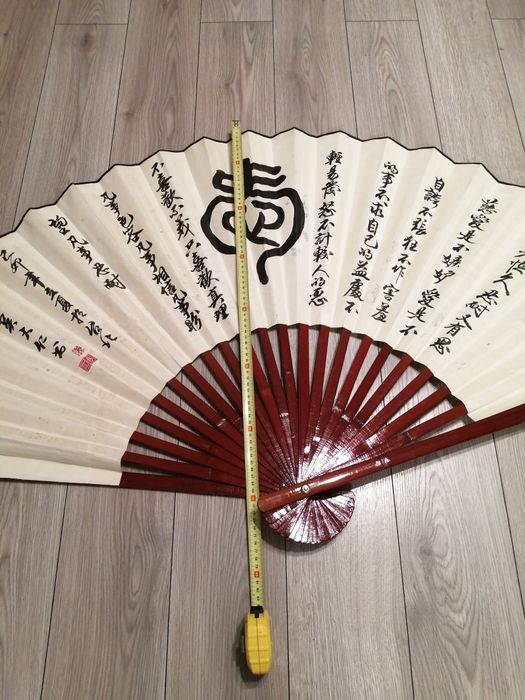 人忍耐又有恩
慈愛是不嫉妒愛是不
自誇不張狂不作害羞
的事不求自己的益處不
輕易發怒不計較人的惡
不喜歡不義只喜歡真理
凡事包容凡事相信凡事盼
望凡事忍耐
己卯年立夏於
大仁書